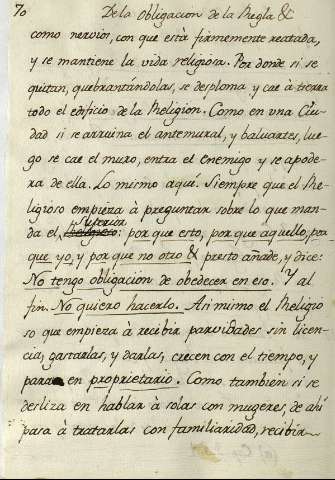 70 De la Obligacion de la Regla &
como nervios, con que està firmemente reatada,
y se mantiene la vida religiosa. Por donde si se
quitan, quebrantándolas, se desploma y cae à tierra
todo el edificio de la Religion. Como en vna Ciu-
dad si se arruina el antemural, y baluartes, lue-
go se cae el muro, entra el enemigo y se apode-
ra de ella. Lo mismo aqui. Siempre que el Re-
ligioso empieza à preguntar sobre lo que man-
da el Superior: por que esto, por que aquello, por
que yo, y por que no otro & presto añade, y dice:
No tengo obligacion de obedecer en eso. Y al
fin. No quiero hacerlo. Asi mismo el Religio
so que empieza à recibir parvidades sin licen-
cia, gastarlas, y darlas, crecen con el tiempo, y
para en proprietario. Como tambien si se
desliza en hablar à solas con mugeres, de ahi
pasa à tratarlas con familiaridad, recibir